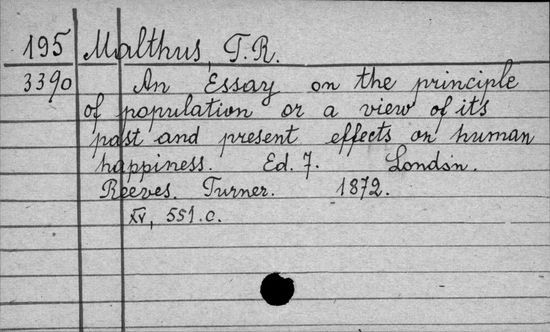 195 Malthus, T.R.
3390 An Essay on the principle
of population or a view of its
past and present effects on human
happiness. Ed. 7. London.
Reeves. Turner. 1872.
XV, 551.c.